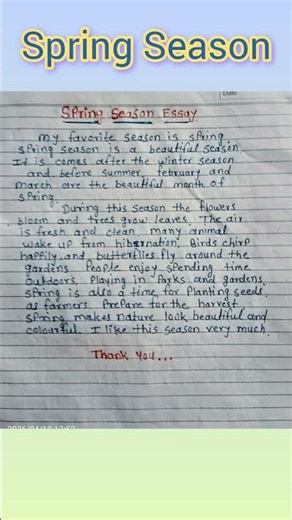 Spring Season
Date
Spring Season Essay
my favorite season is spring.
spring season is a beautiful season.
It is comes after the winter season
and before summer, february and
march are the beautiful month of
spring.
During this season the flowers
bloom and trees grow leaves. The air
is fresh and clean. many animal
wake up from hibernation. Birds chirp
happily and butterflies fly around the
gardens. People enjoy spending time
outdoors. Playing in Parks and gardens.
spring is also a time for planting seeds
as farmers Prepare for the harvest.
spring makes nature look beautiful and
colourful. I like this season very much.
Thank You...